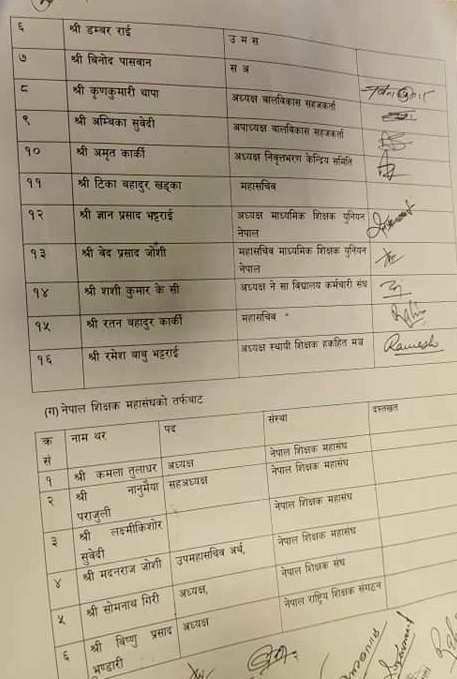 ६ श्री डम्बर राई उ म स
७ श्री बिनोद पासवान स अ
८ श्री कृणकुमारी थापा अध्यक्ष बालविकास सहजकर्ता
९ श्री अम्विका सुवेदी अपाध्यक्ष बालविकास सहजकर्ता
१० श्री अमृत कार्की अध्यक्ष निवृत्तभरण केन्द्रिय समिति
११ श्री टिका बहादुर खड्का महासचिव
१२ श्री ज्ञान प्रसाद भट्टराई अध्यक्ष माध्यमिक शिक्षक युनियन
नेपाल
१३ श्री वेद प्रसाद जोशी महासचिव माध्यमिक शिक्षक युनियन
नेपाल
१४ श्री शशी कुमार के सी अध्यक्ष ने सा विद्यालय कर्मचारी संघ
१५ श्री रतन बहादुर कार्की महासचिव
१६ श्री रमेश बाबु भट्टराई अध्यक्ष स्थायी शिक्षक हकहित मञ्च Ramesh
(ग) नेपाल शिक्षक महासंघको तर्फबाट
क्र नाम थर पद संस्था दस्तखत
सं
१ श्री कमला तुलाधर अध्यक्ष नेपाल शिक्षक महासंघ
२ श्री नानुमैया सहअध्यक्ष नेपाल शिक्षक महासंघ
पराजुली
३ श्री लक्ष्मीकिशोर नेपाल शिक्षक महासंघ
सुवेदी
४ श्री मदनराज जोशी उपमहासचिव अर्थ, नेपाल शिक्षक महासंघ
५ श्री सोमनाथ गिरी अध्यक्ष, नेपाल शिक्षक संघ
६ श्री विष्णु प्रसाद अध्यक्ष नेपाल राष्ट्रिय शिक्षक संगठन
भण्डारी